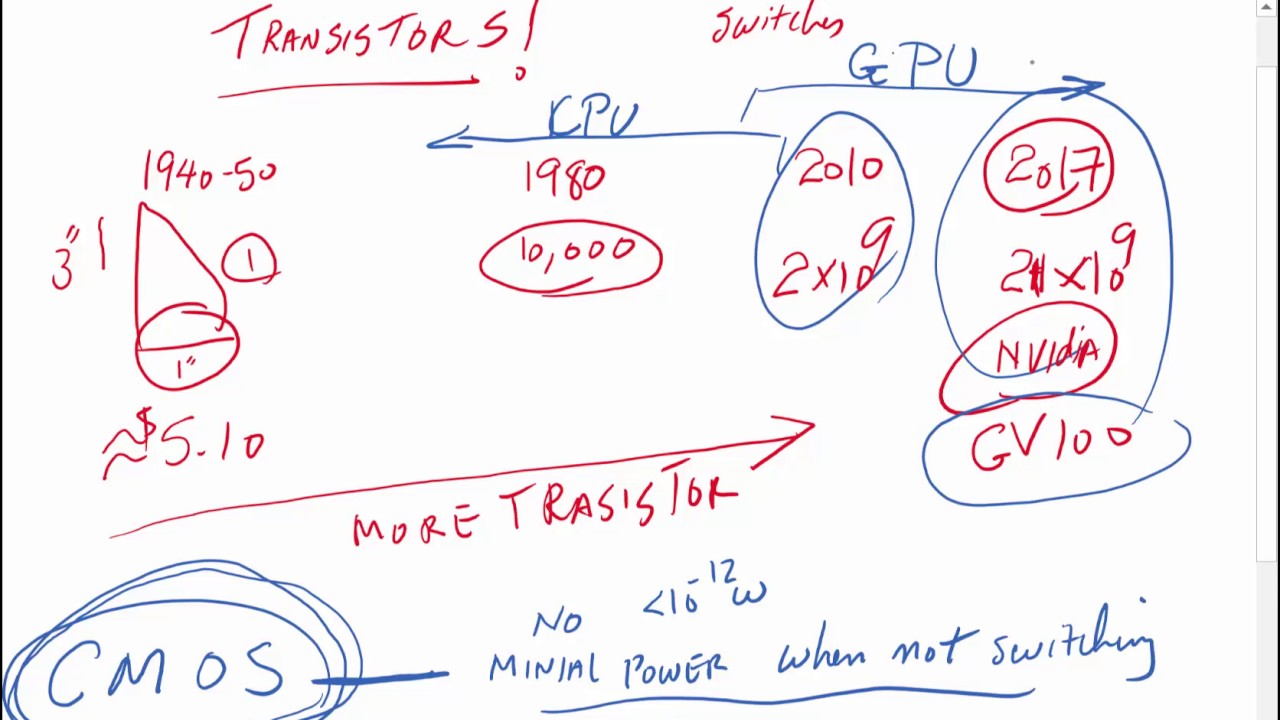 TRANSISTORS!
switches
GPU
CPU
1940-50
1980
2010
2017
3"
1
10,000
2x10^9
21x10^9
1"
NVidiA
≈$5-10
GV100
MORE TRASISTOR
NO <10^-12 W
CMOS — MINIAL POWER when not switching